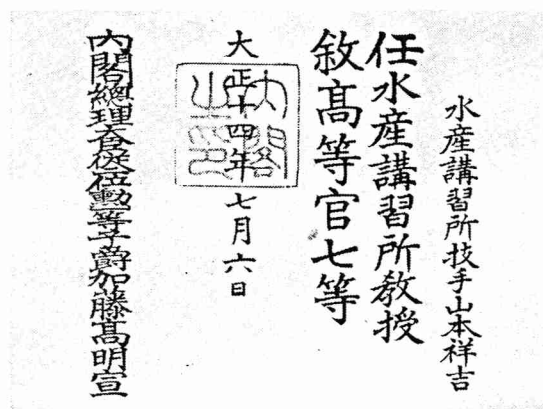 水産講習所技手山本祥吉
任水産講習所教授
敘高等官七等
大正十四年七月六日
内閣之印
内閣總理大臣從二位勳一等子爵加藤高明宣